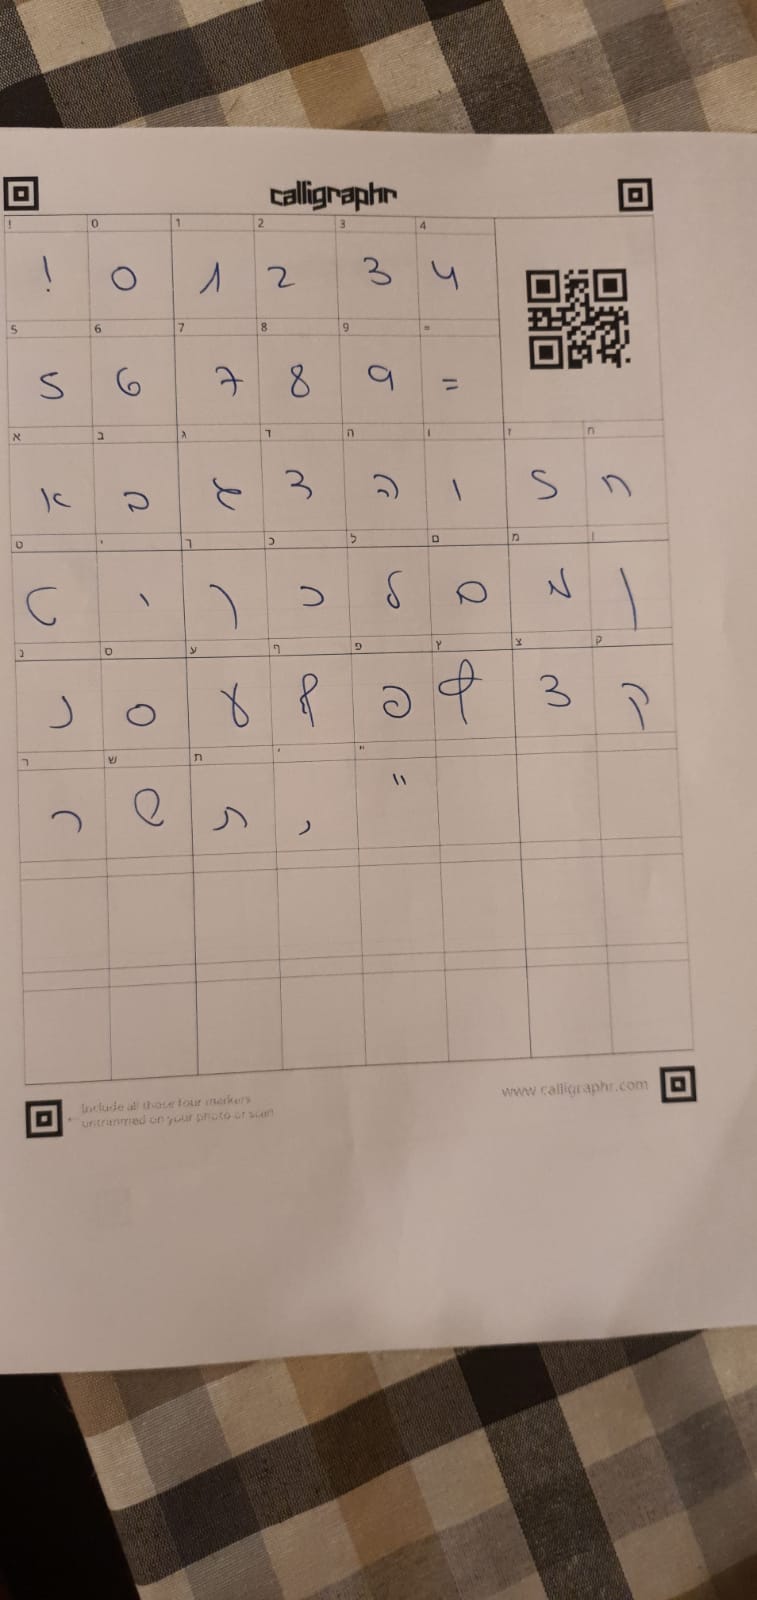 calligraphr
! 0 1 2 3 4
! 0 1 2 3 4
5 6 7 8 9 =
5 6 7 8 9 =
א ב ג ד ה ו ז ח
א ב ג ד ה ו ז ח
ט י ך כ ל ם מ ן
ט י ך כ ל ם מ ן
נ ס ע ף פ ץ צ ק
נ ס ע ף פ ץ צ ק
ר ש ת ' "
ר ש ת , "
Include all these four markers
← untrimmed on your photo or scan
www.calligraphr.com